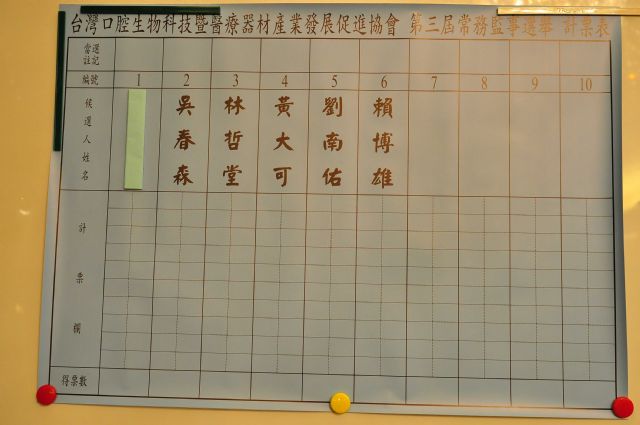 台灣口腔生物科技暨醫療器材產業發展促進協會 第三屆常務監事選舉 計票表
當選註記
編號 1 2 3 4 5 6 7 8 9 10
候選人姓名 吳春森 林哲堂 黃大可 劉南佑 賴博雄
計票欄
得票數